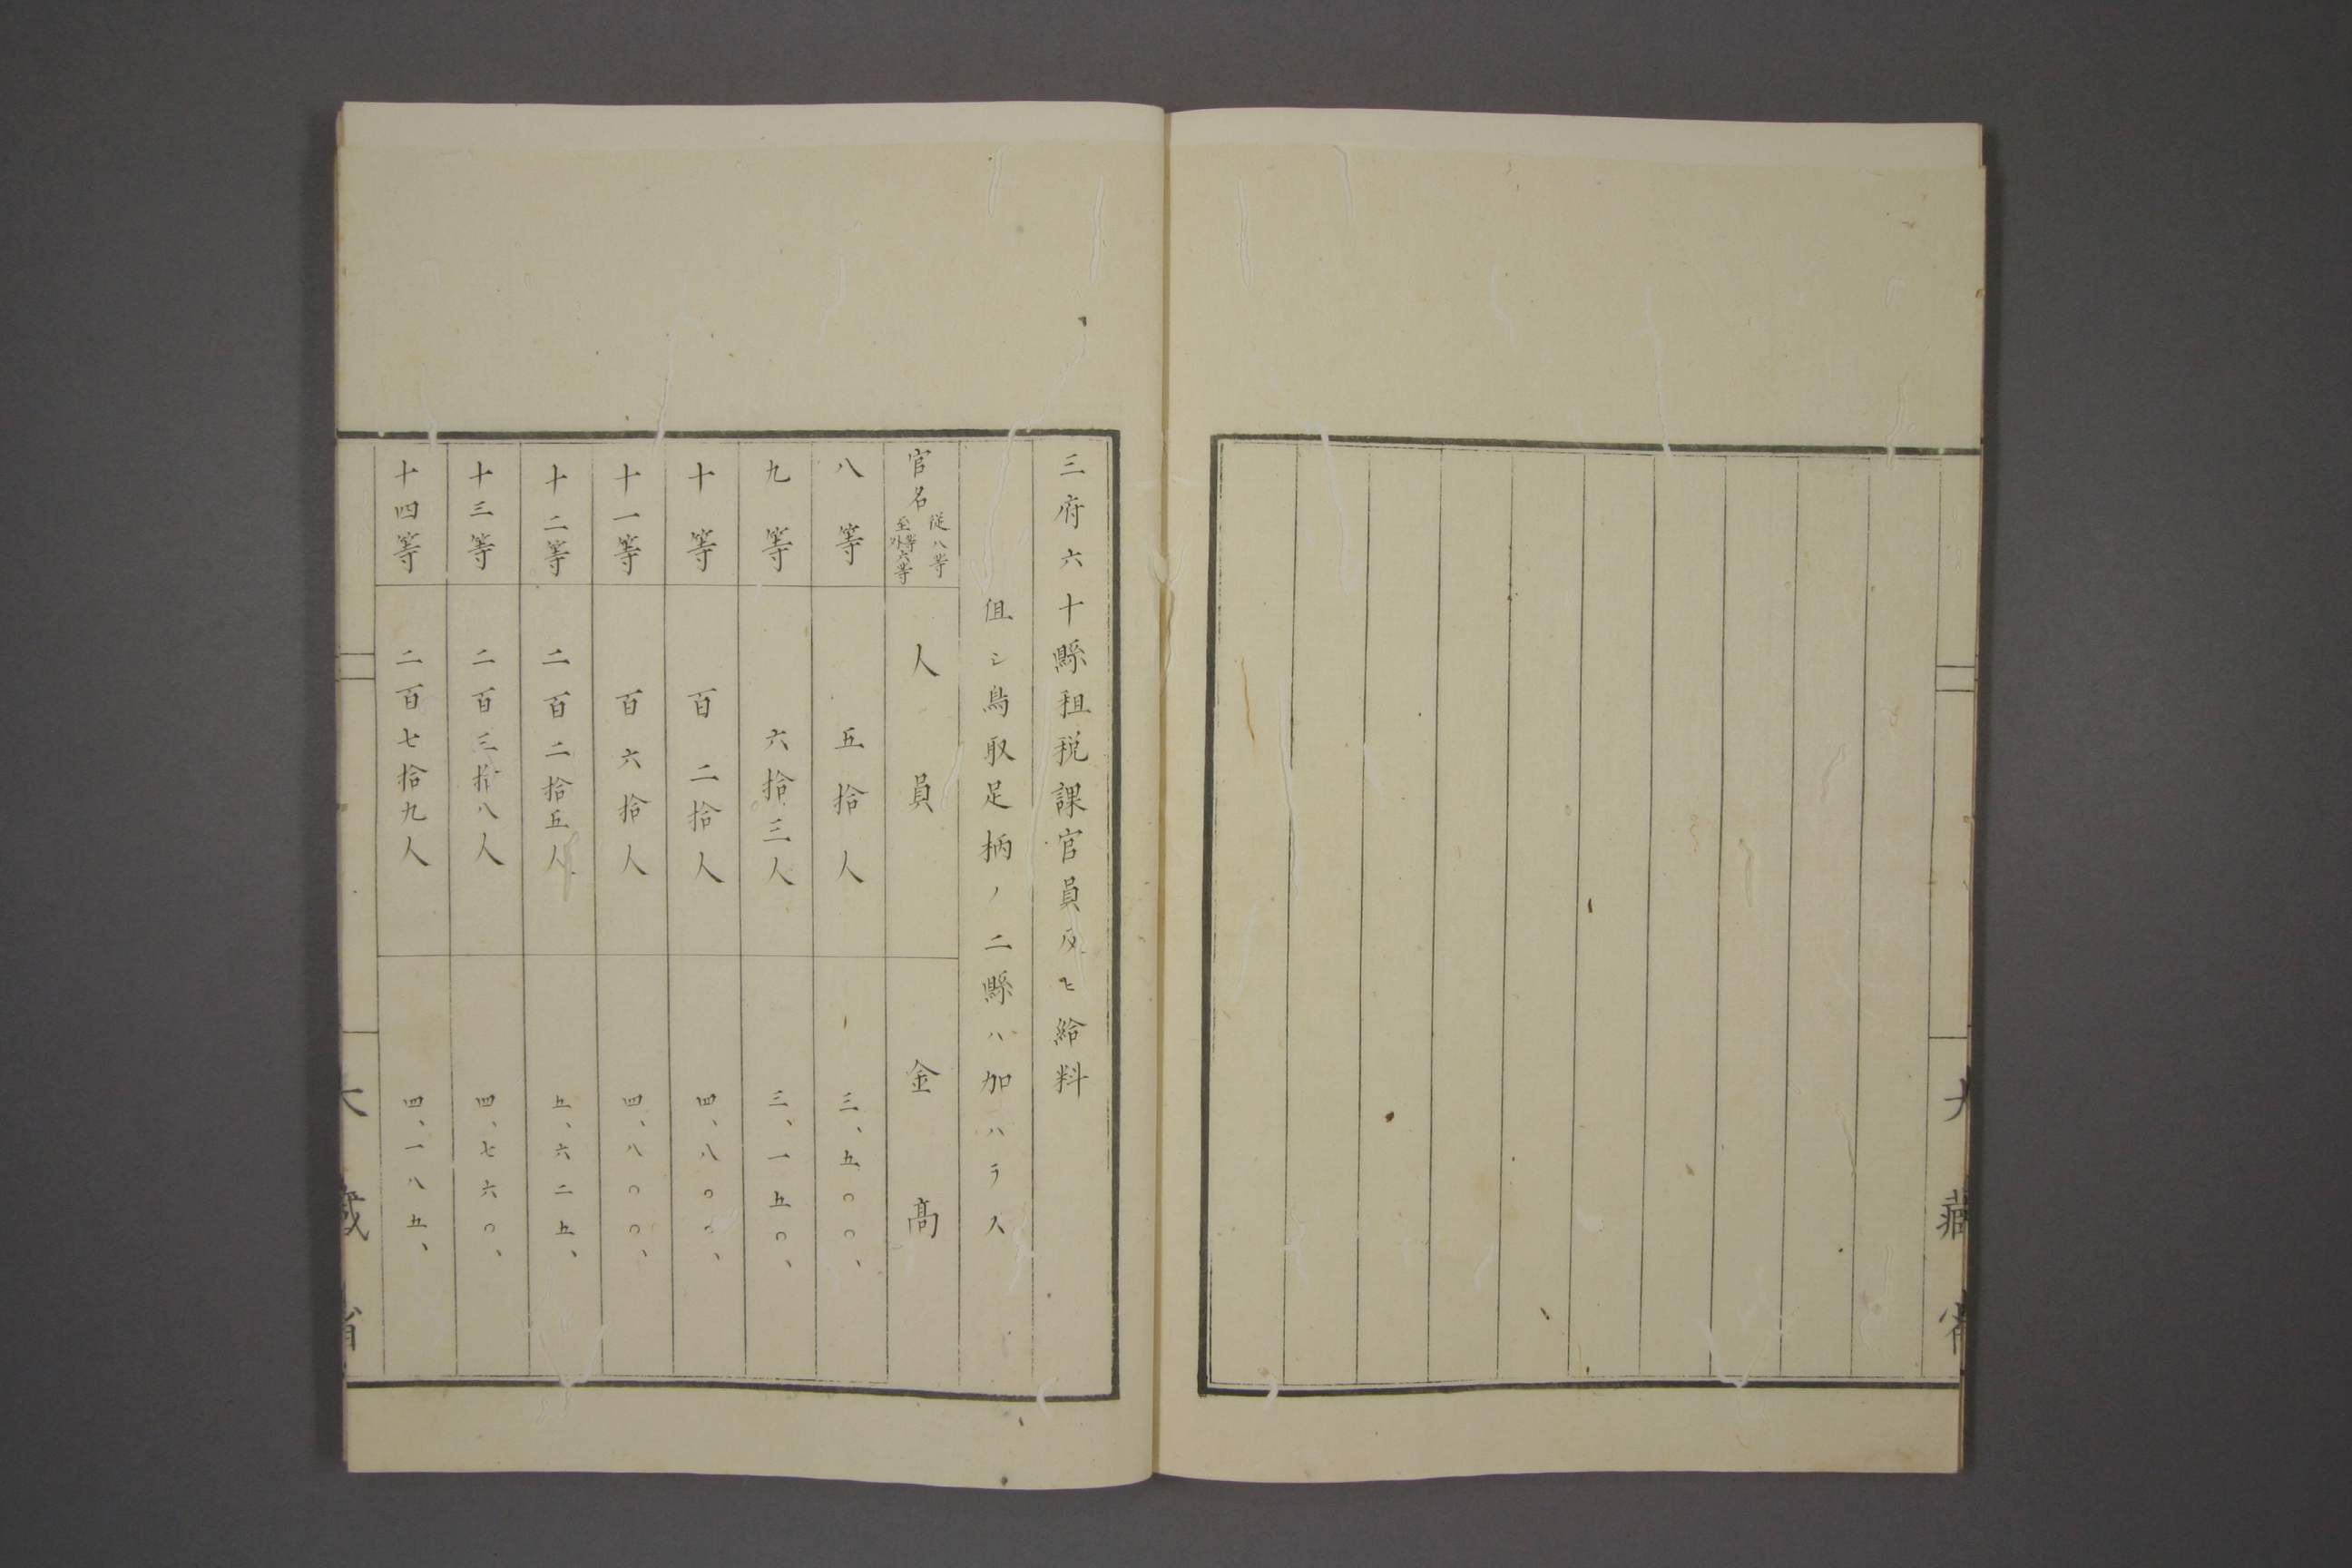 大藏省
三府六十縣租税課官員及ヒ給料
但シ鳥取足柄ノ二縣ハ加ハラス
官名 從八等至等外六等 人員 金高
八等 五拾人 三、五〇〇、
九等 六拾三人 三、一五〇、
十等 百二拾人 四、八〇〇、
十一等 百六拾人 四、八〇〇、
十二等 二百二拾五人 五、六二五、
十三等 二百三拾八人 四、七六〇、
十四等 二百七拾九人 四、一八五、
大藏省